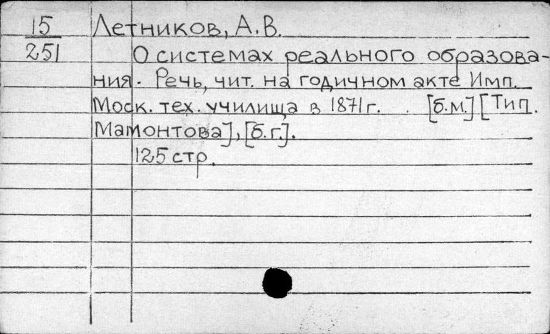 15 Летников, А.В.
251 О системах реального образова-
ния. Речь, чит. на годичном акте Имп.
Моск. тех. училища в 1871 г. [б.м.] [Тип.
Мамонтова], [б.г.].
125 стр.